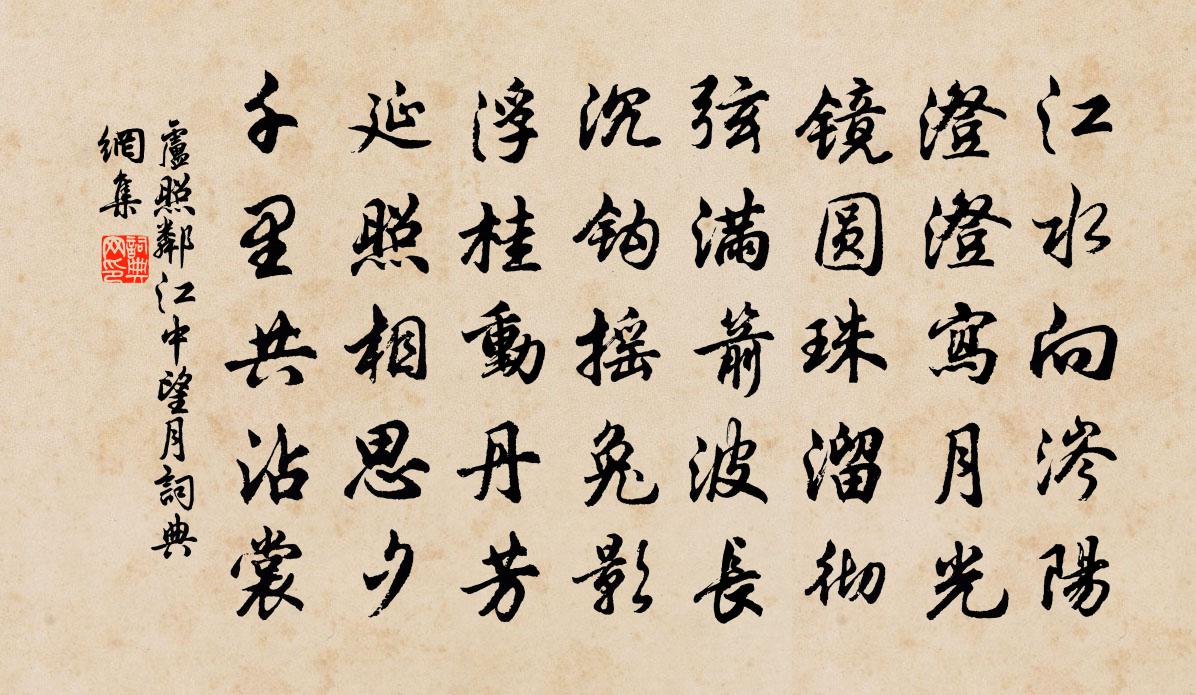 江水向涔陽
澄澄寫月光
镜圆珠溜彻
弦满箭波長
沉钩摇兔影
浮桂動丹芳
延照相思夕
千里共沾裳
盧照鄰江中望月詞典
網集
詞典
网印